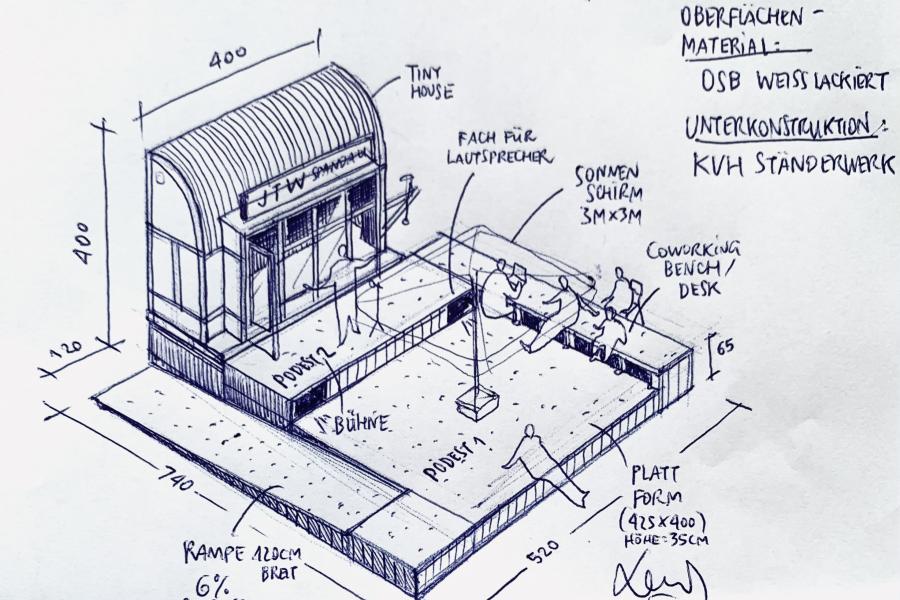 OBERFLÄCHEN-
MATERIAL:
OSB WEISS LACKIERT
UNTERKONSTRUKTION:
KVH STÄNDERWERK
400
TINY
HOUSE
FACH FÜR
LAUTSPRECHER
SONNEN
SCHIRM
3M×3M
COWORKING
BENCH/
DESK
JTW SPANDAU
400
120
65
PODEST 2
"BÜHNE
PODEST 1
740
520
PLATT
FORM
(425×400)
HÖHE=35CM
RAMPE 120CM
BREIT
6%